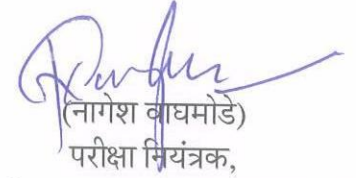 (नागेश वाघमोडे)
परीक्षा नियंत्रक,